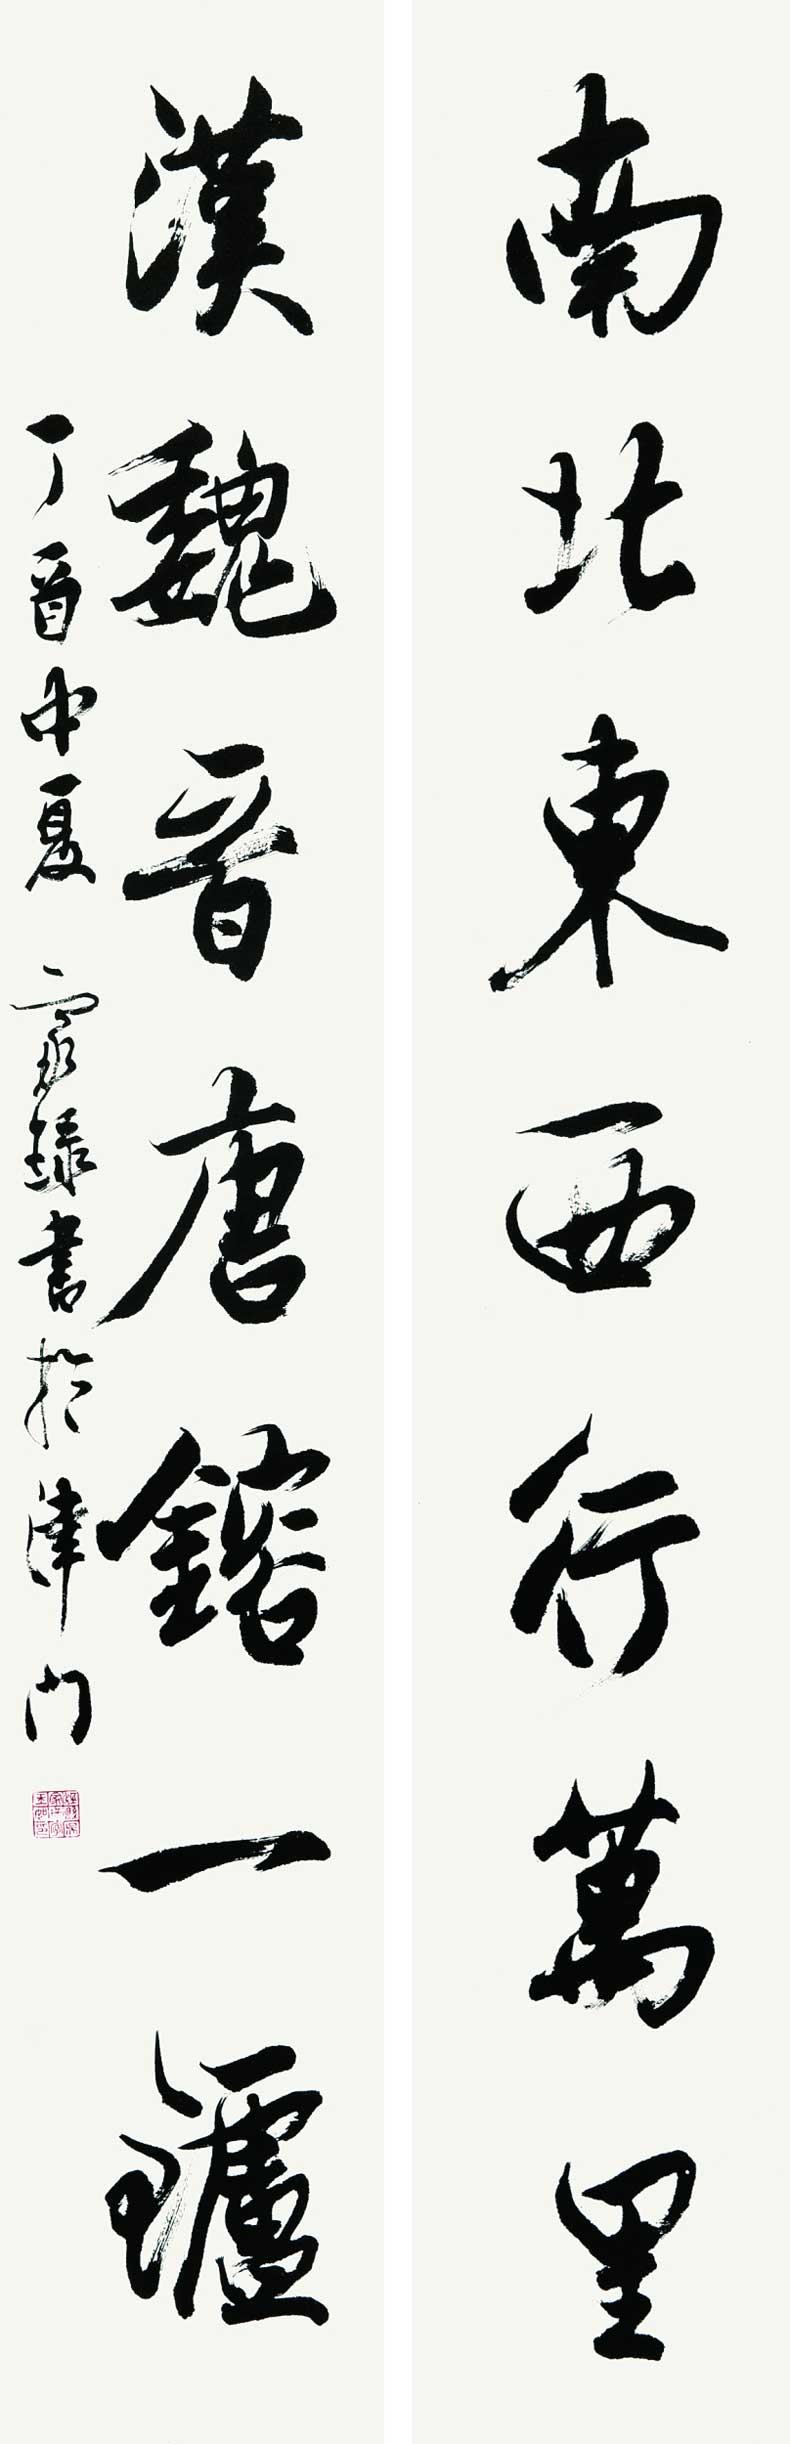 南北東西行萬里
漢魏晋唐鎔一爐
丁酉中夏 書於津門